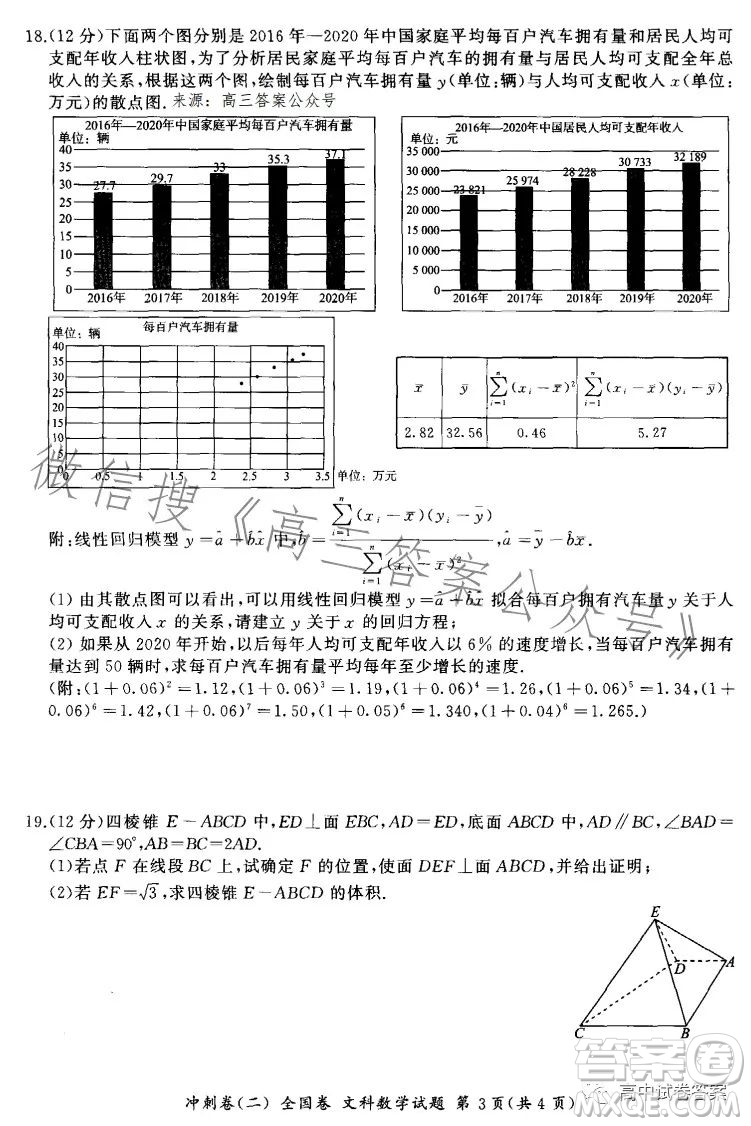 18.(12分)下面两个图分别是2016年—2020年中国家庭平均每百户汽车拥有量和居民人均可
支配年收入柱状图,为了分析居民家庭平均每百户汽车的拥有量与居民人均可支配全年总
收入的关系,根据这两个图,绘制每百户汽车拥有量 y(单位:辆)与人均可支配收入 x(单位:
万元)的散点图.来源:高三答案公众号
2016年—2020年中国家庭平均每百户汽车拥有量
单位:辆
40
35
30
25
20
15
10
5
0
27.7
29.7
33
35.3
37.1
2016年 2017年 2018年 2019年 2020年
2016年—2020年中国居民人均可支配年收入
单位:元
35 000
30 000
25 000
20 000
15 000
10 000
5 000
0
23 821
25 974
28 228
30 733
32 189
2016年 2017年 2018年 2019年 2020年
每百户汽车拥有量
单位:辆
40
35
30
25
20
15
10
5
0 0.5 1 1.5 2 2.5 3 3.5 单位:万元
x̄ ȳ ∑(i=1→n)(xᵢ-x̄)² ∑(i=1→n)(xᵢ-x̄)(yᵢ-ȳ)
2.82 32.56 0.46 5.27
附:线性回归模型 y=â+b̂x 中,b̂=∑(i=1→n)(xᵢ-x̄)(yᵢ-ȳ)/∑(i=1→n)(xᵢ-x̄)²,â=ȳ-b̂x̄.
(1)由其散点图可以看出,可以用线性回归模型 y=â+b̂x 拟合每百户拥有汽车量 y 关于人
均可支配年收入 x 的关系,请建立 y 关于 x 的回归方程;
(2)如果从2020年开始,以后每年人均可支配年收入以6%的速度增长,当每百户汽车拥有
量达到50辆时,求每百户汽车拥有量平均每年至少增长的速度.
(附:(1+0.06)²=1.12,(1+0.06)³=1.19,(1+0.06)⁴=1.26,(1+0.06)⁵=1.34,(1+
0.06)⁶=1.42,(1+0.06)⁷=1.50,(1+0.05)⁶=1.340,(1+0.04)⁶=1.265.)
微信搜《高三答案公众号》
19.(12分)四棱锥 E-ABCD 中,ED⊥面 EBC,AD=ED,底面 ABCD 中,AD∥BC,∠BAD=
∠CBA=90°,AB=BC=2AD.
(1)若点 F 在线段 BC 上,试确定 F 的位置,使面 DEF⊥面 ABCD,并给出证明;
(2)若 EF=√3,求四棱锥 E-ABCD 的体积.
E
D
A
C
B
答案圈
高中试卷答案
冲刺卷(二) 全国卷 文科数学试题 第3页(共4页)